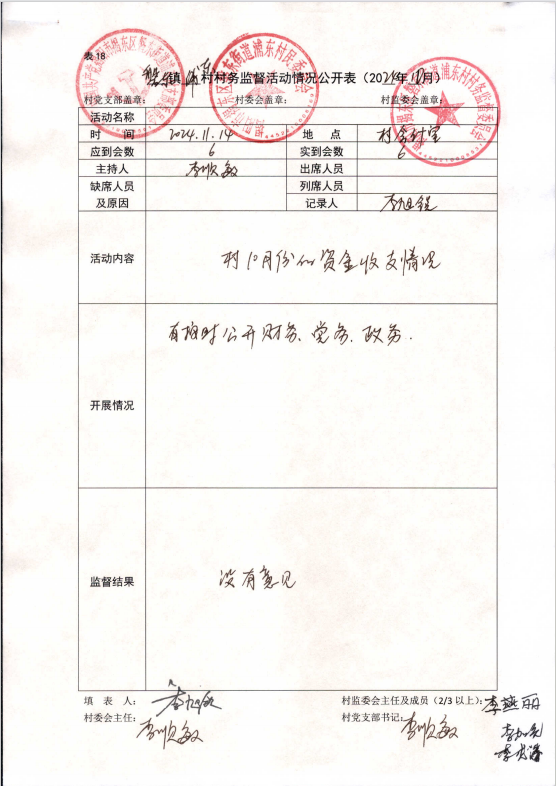 表 18
镇 浦东 村村务监督活动情况公开表（2024年10月）
村党支部盖章： 村委会盖章： 村监委会盖章：
活动名称
时 间 2024.11.14 地 点 村会议室
应到会数 6 实到会数 6
主持人 李顺敏 出席人员
缺席人员及原因 列席人员
记录人 李旭
活动内容 村10月份的资金收支情况
开展情况 有按时公开财务、党务、政务.
监督结果 没有意见
填 表 人： 李旭
村监委会主任及成员（2/3以上）： 李燕丽
村委会主任： 李顺敏 村党支部书记： 李顺敏